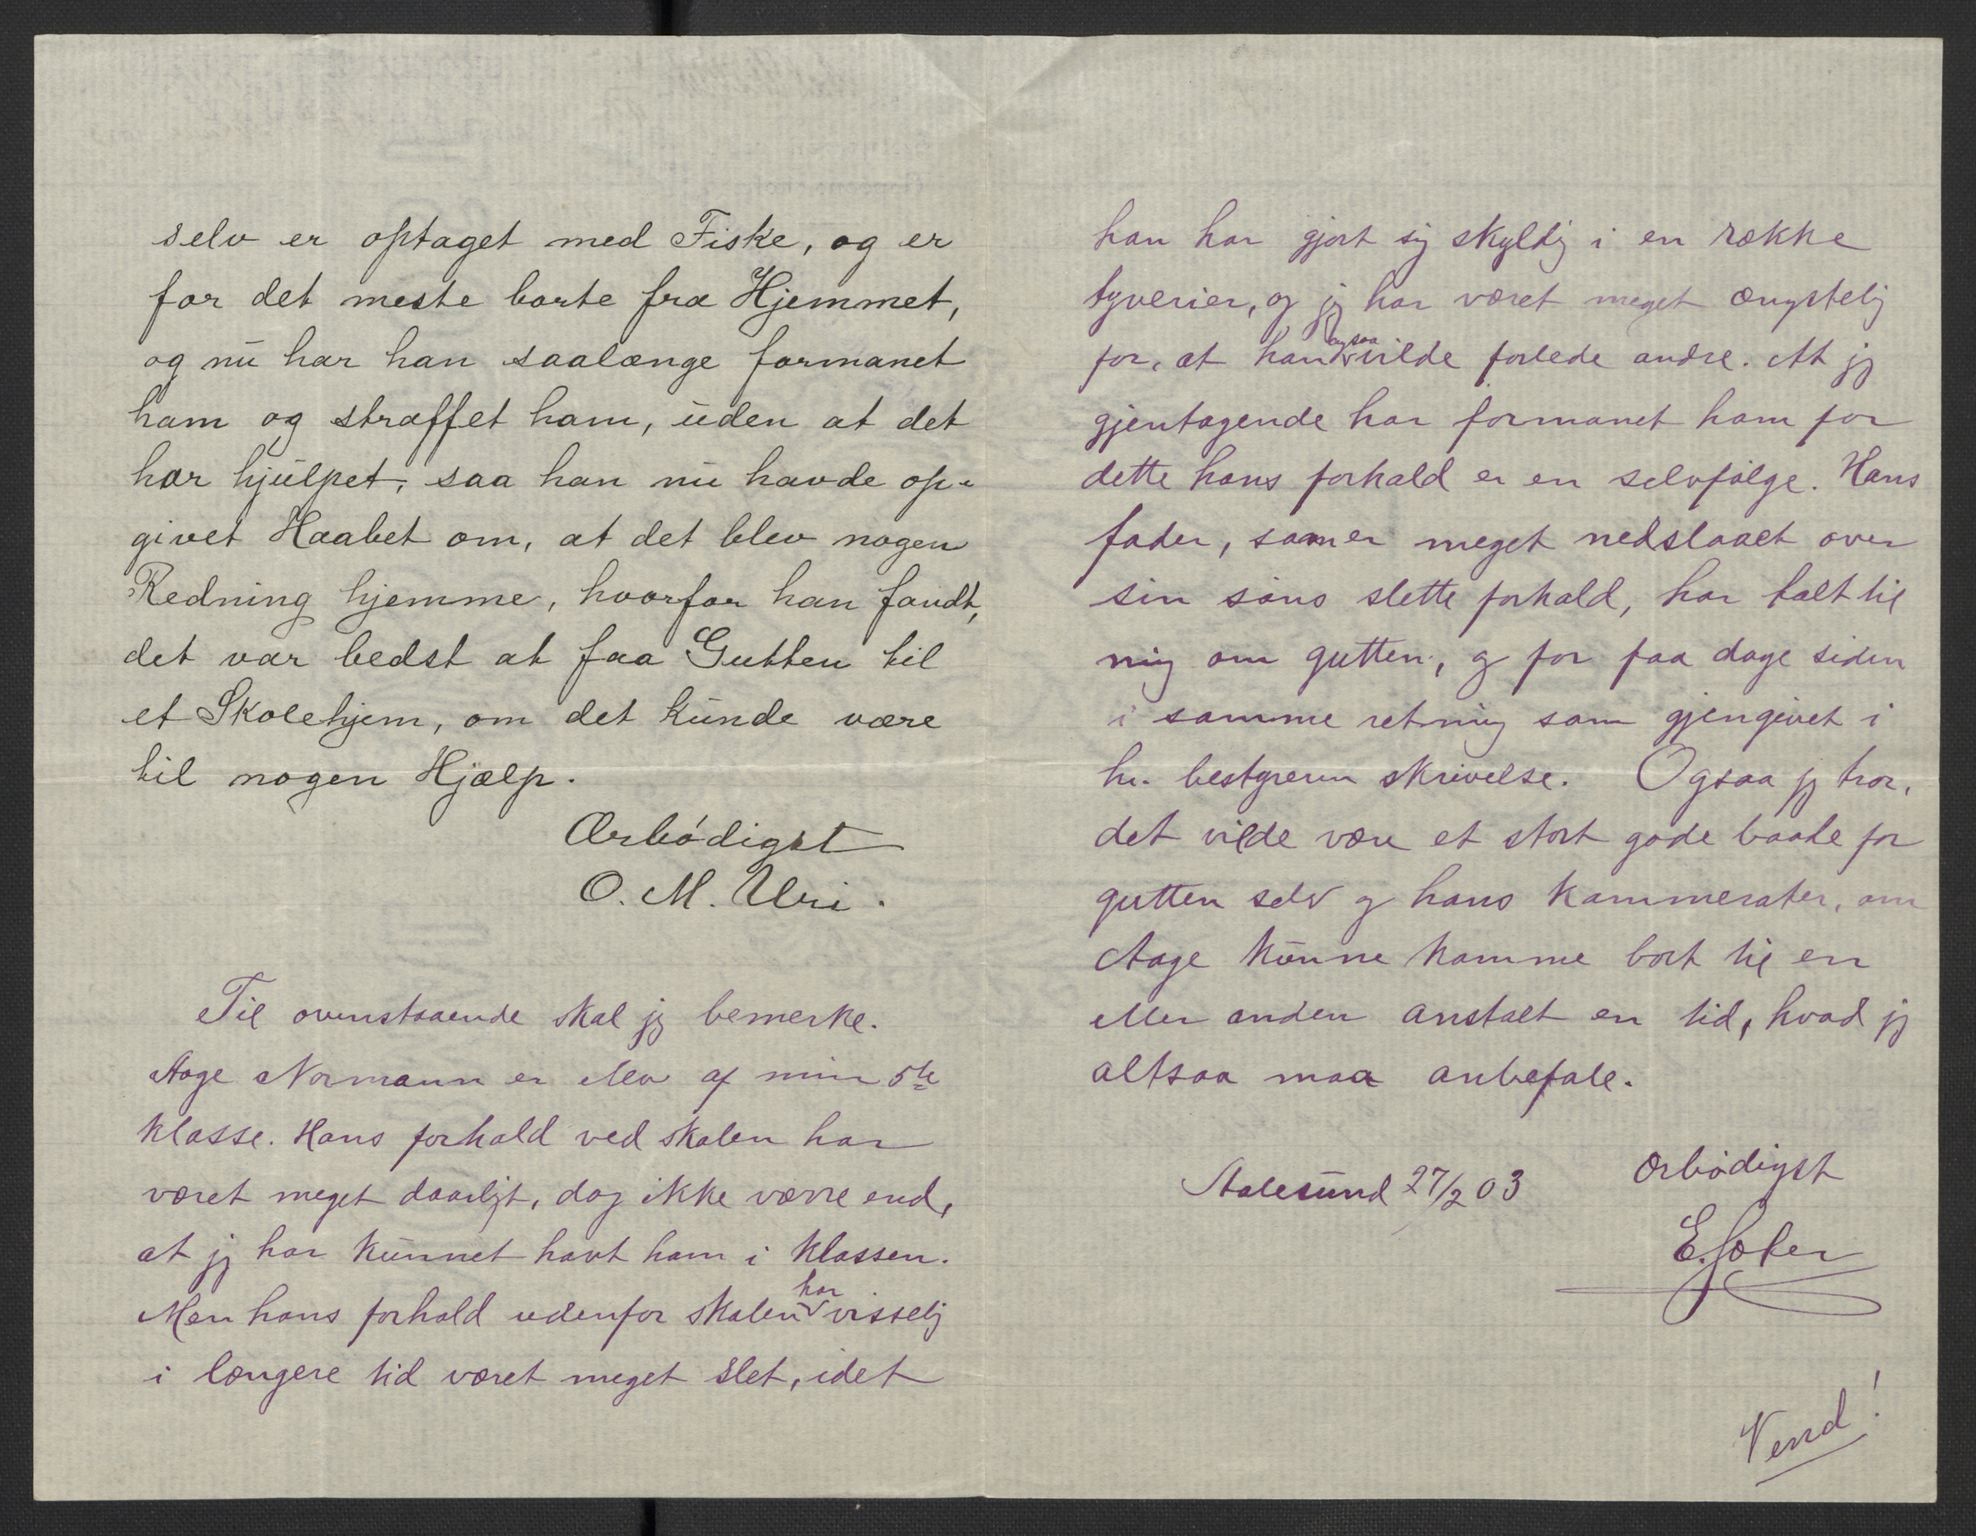 selv er optaget med Fiske, og er
for det meste borte fra Hjemmet,
og nu har han saalænge formanet
ham og straffet ham, uden at det
har hjulpet, saa han nu havde op-
givet Haabet om, at det blev nogen
Redning hjemme, hvorfor han fandt,
det var bedst at faa Gutten til
et Skolehjem, om det kunde være
til nogen Hjælp.
Ærbødigst
O. M. Uri.
Til ovenstaaende skal jeg bemerke.
Aage Normann er elev af min 5te
klasse. Hans forhold ved skolen har
været meget daarligt, dog ikke værre end,
at jeg har kunnet havt ham i klassen.
Men hans forhold udenfor skolen har visselig
i længere tid været meget slet, idet
han har gjort sig skyldig i en række
tyverier, og jeg har været meget ængstelig
for, at han ogsaa vilde forlede andre. At jeg
gjentagende har formanet ham for
dette hans forhold er en selvfølge. Hans
fader, som er meget nedslaaet over
sin søns slette forhold, har talt til
mig om gutten, og for faa dage siden
i samme retning som gjengivet i
hr. bestyreren skrivelse. Ogsaa jeg tror,
det vilde være et stort gode baade for
gutten selv og hans kammerater, om
Aage kunne komme bort til en
eller anden anstalt en tid, hvad jeg
altsaa maa anbefale.
Aalesund 27/2 03
Ærbødigst
E. Sæter
Vend!